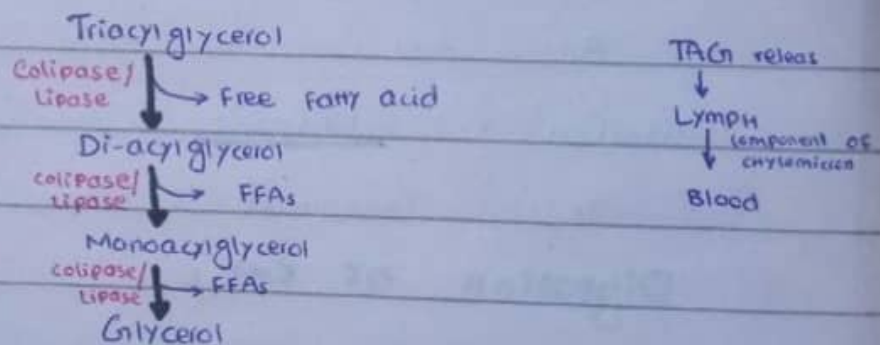 Triacylglycerol
Colipase/
Lipase
Free Fatty acid
Di-acylglycerol
colipase/
Lipase
FFAs
Monoacylglycerol
colipase/
Lipase
FFAs
Glycerol
TAG releas
Lymph
component of
chylomicron
Blood
Digestion of